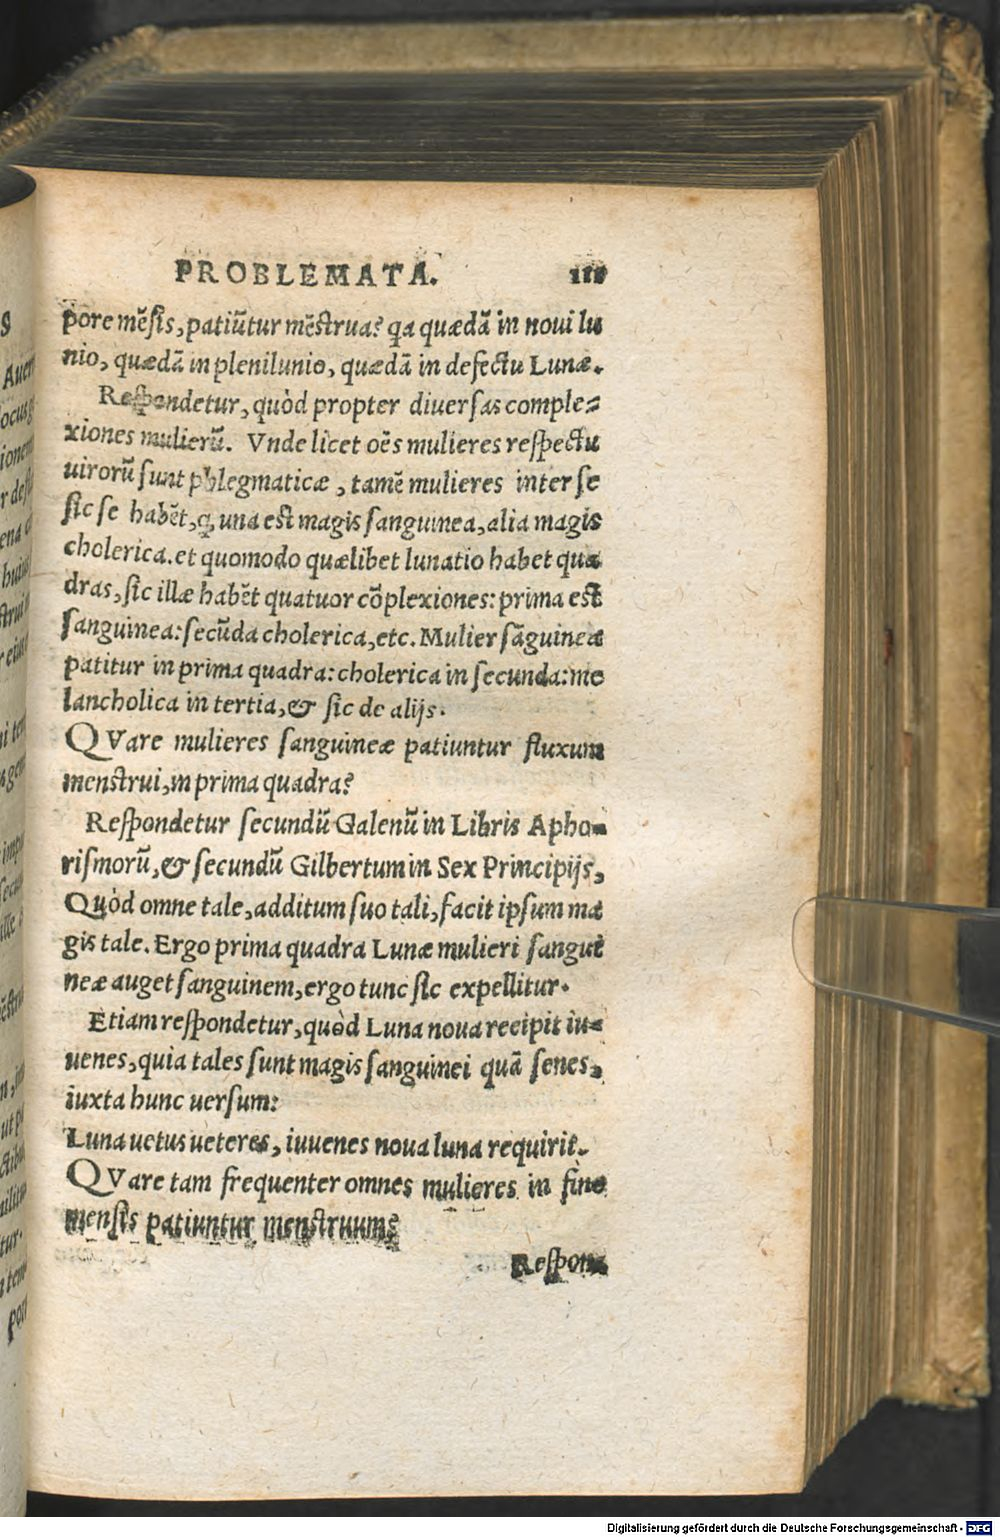 PROBLEMATA. 111
pore mẽsis, patiũtur mẽstrua? qa quædã in noui lu
nio, quædã in plenilunio, quædã in defectu Lunæ.
Respondetur, quòd propter diuersas comple-
xiones mulierũ. Vnde licet oẽs mulieres respectu
uirorũ sunt phlegmaticæ, tamẽ mulieres inter se
sic se habẽt, q una est magis sanguinea, alia magis
cholerica. et quomodo quælibet lunatio habet qua
dras, sic illæ habẽt quatuor cõplexiones: prima est
sanguinea: secũda cholerica, etc. Mulier sãguinea
patitur in prima quadra: cholerica in secunda: me
lancholica in tertia, & sic de alijs.
QVare mulieres sanguineæ patiuntur fluxum
menstrui, in prima quadra?
Respondetur secundũ Galenũ in Libris Apho-
rismorũ, & secundũ Gilbertum in Sex Principijs,
Quòd omne tale, additum suo tali, facit ipsum ma
gis tale. Ergo prima quadra Lunæ mulieri sangui
neæ auget sanguinem, ergo tunc sic expellitur.
Etiam respondetur, quòd Luna noua recipit iu-
uenes, quia tales sunt magis sanguinei quã senes,
iuxta hunc uersum:
Luna uetus ueteres, iuuenes noua luna requirit.
QVare tam frequenter omnes mulieres in fine
mensis patiuntur menstruum?
Respon-
Digitalisierung gefördert durch die Deutsche Forschungsgemeinschaft - DFG